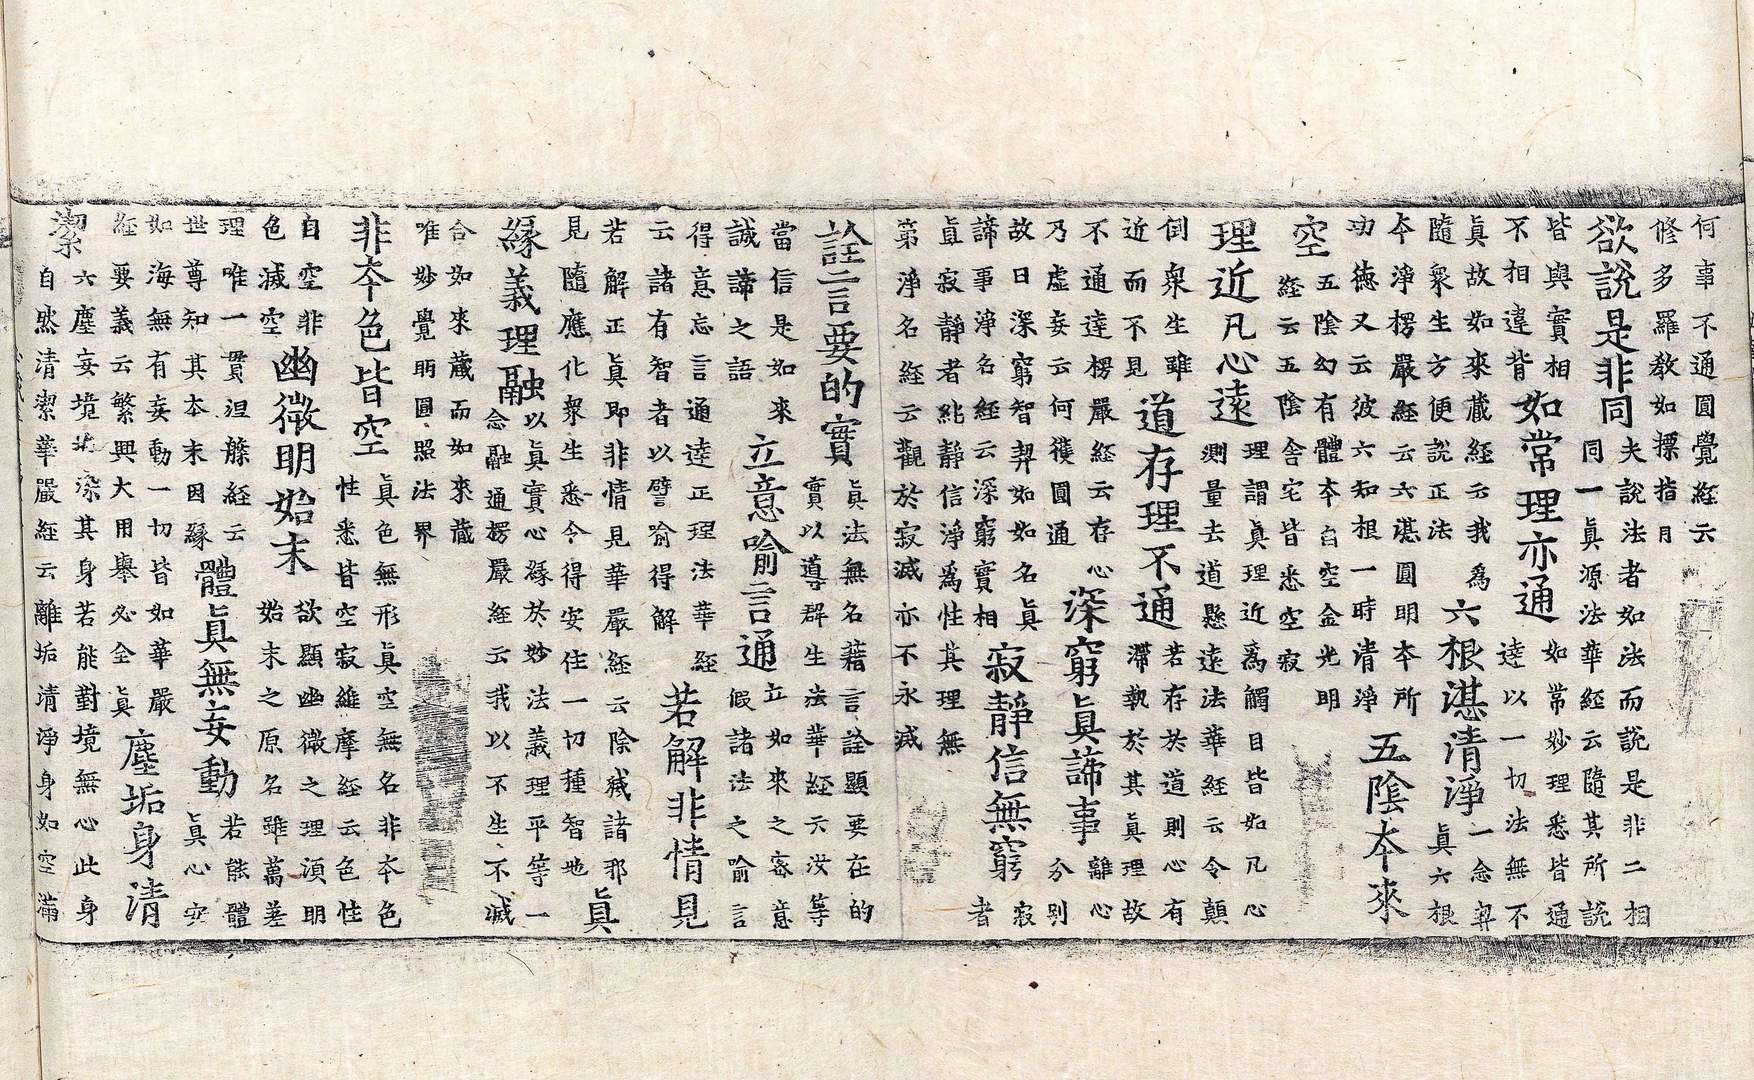 何事不通圓覺經云
修多羅教如摽指月
欲說是非同
夫說法者如法而說是非二相
同一真源法華經云隨其所說
皆與實相
不相違背
如常理亦通
如常妙理悉皆通
達以一切法無不
真故如來藏經云我爲
隨衆生方便說正法
六根湛清淨
一念契
真六根
夲淨楞嚴經云六湛圓明夲所
功德又云彼六知根一時清淨
五陰夲來
空
五陰幻有體夲自空金光明
經云五陰舍宅皆悉空寂
理近凡心遠
理謂真理近爲觸目皆如凡心
測量去道懸遠法華經云令顛
倒衆生雖
近而不見
道存理不通
若存扵道則心有
滯執扵其真理故
不通達楞嚴經云存心
乃虛妄云何獲圓通
深窮真諦事
離心
分别
故曰深窮智契如如名真
諦事淨名經云深窮實相
寂靜信無窮
寂
者
真寂靜者純靜信淨爲性其理無
第淨名經云觀於寂滅亦不永滅
詮言要的實
真法無名藉言詮顯要在的
實以導群生法華經云汝等
當信是如來
誠諦之語
立意喻言通
立如來之密意
假諸法之喻言
得意忘言通達正理法華經
云諸有智者以譬喻得解
若解非情見
若解正真即非情見華嚴經云除滅諸邪
見隨應化衆生悉令得安住一切種智地
真
緣義理融
以真實心緣於妙法義理平等一
念融通楞嚴經云我以不生不滅
合如來藏而如來藏
唯妙覺明圓照法界
非夲色皆空
真色無形真空無名非夲色
性悉皆空寂維摩經云色性
自空非
色滅空
幽微明始末
欲顯幽微之理須明
始末之原名雖萬差
理唯一貫涅槃經云
世尊知其夲末因緣
體真無妄動
若能體
真心安
如海無有妄動一切皆如華嚴
經要義云繁興大用舉必全真
塵垢身清
潔
六塵妄境非染其身若能對境無心此身
自然清潔華嚴經云離垢清淨身如空滿